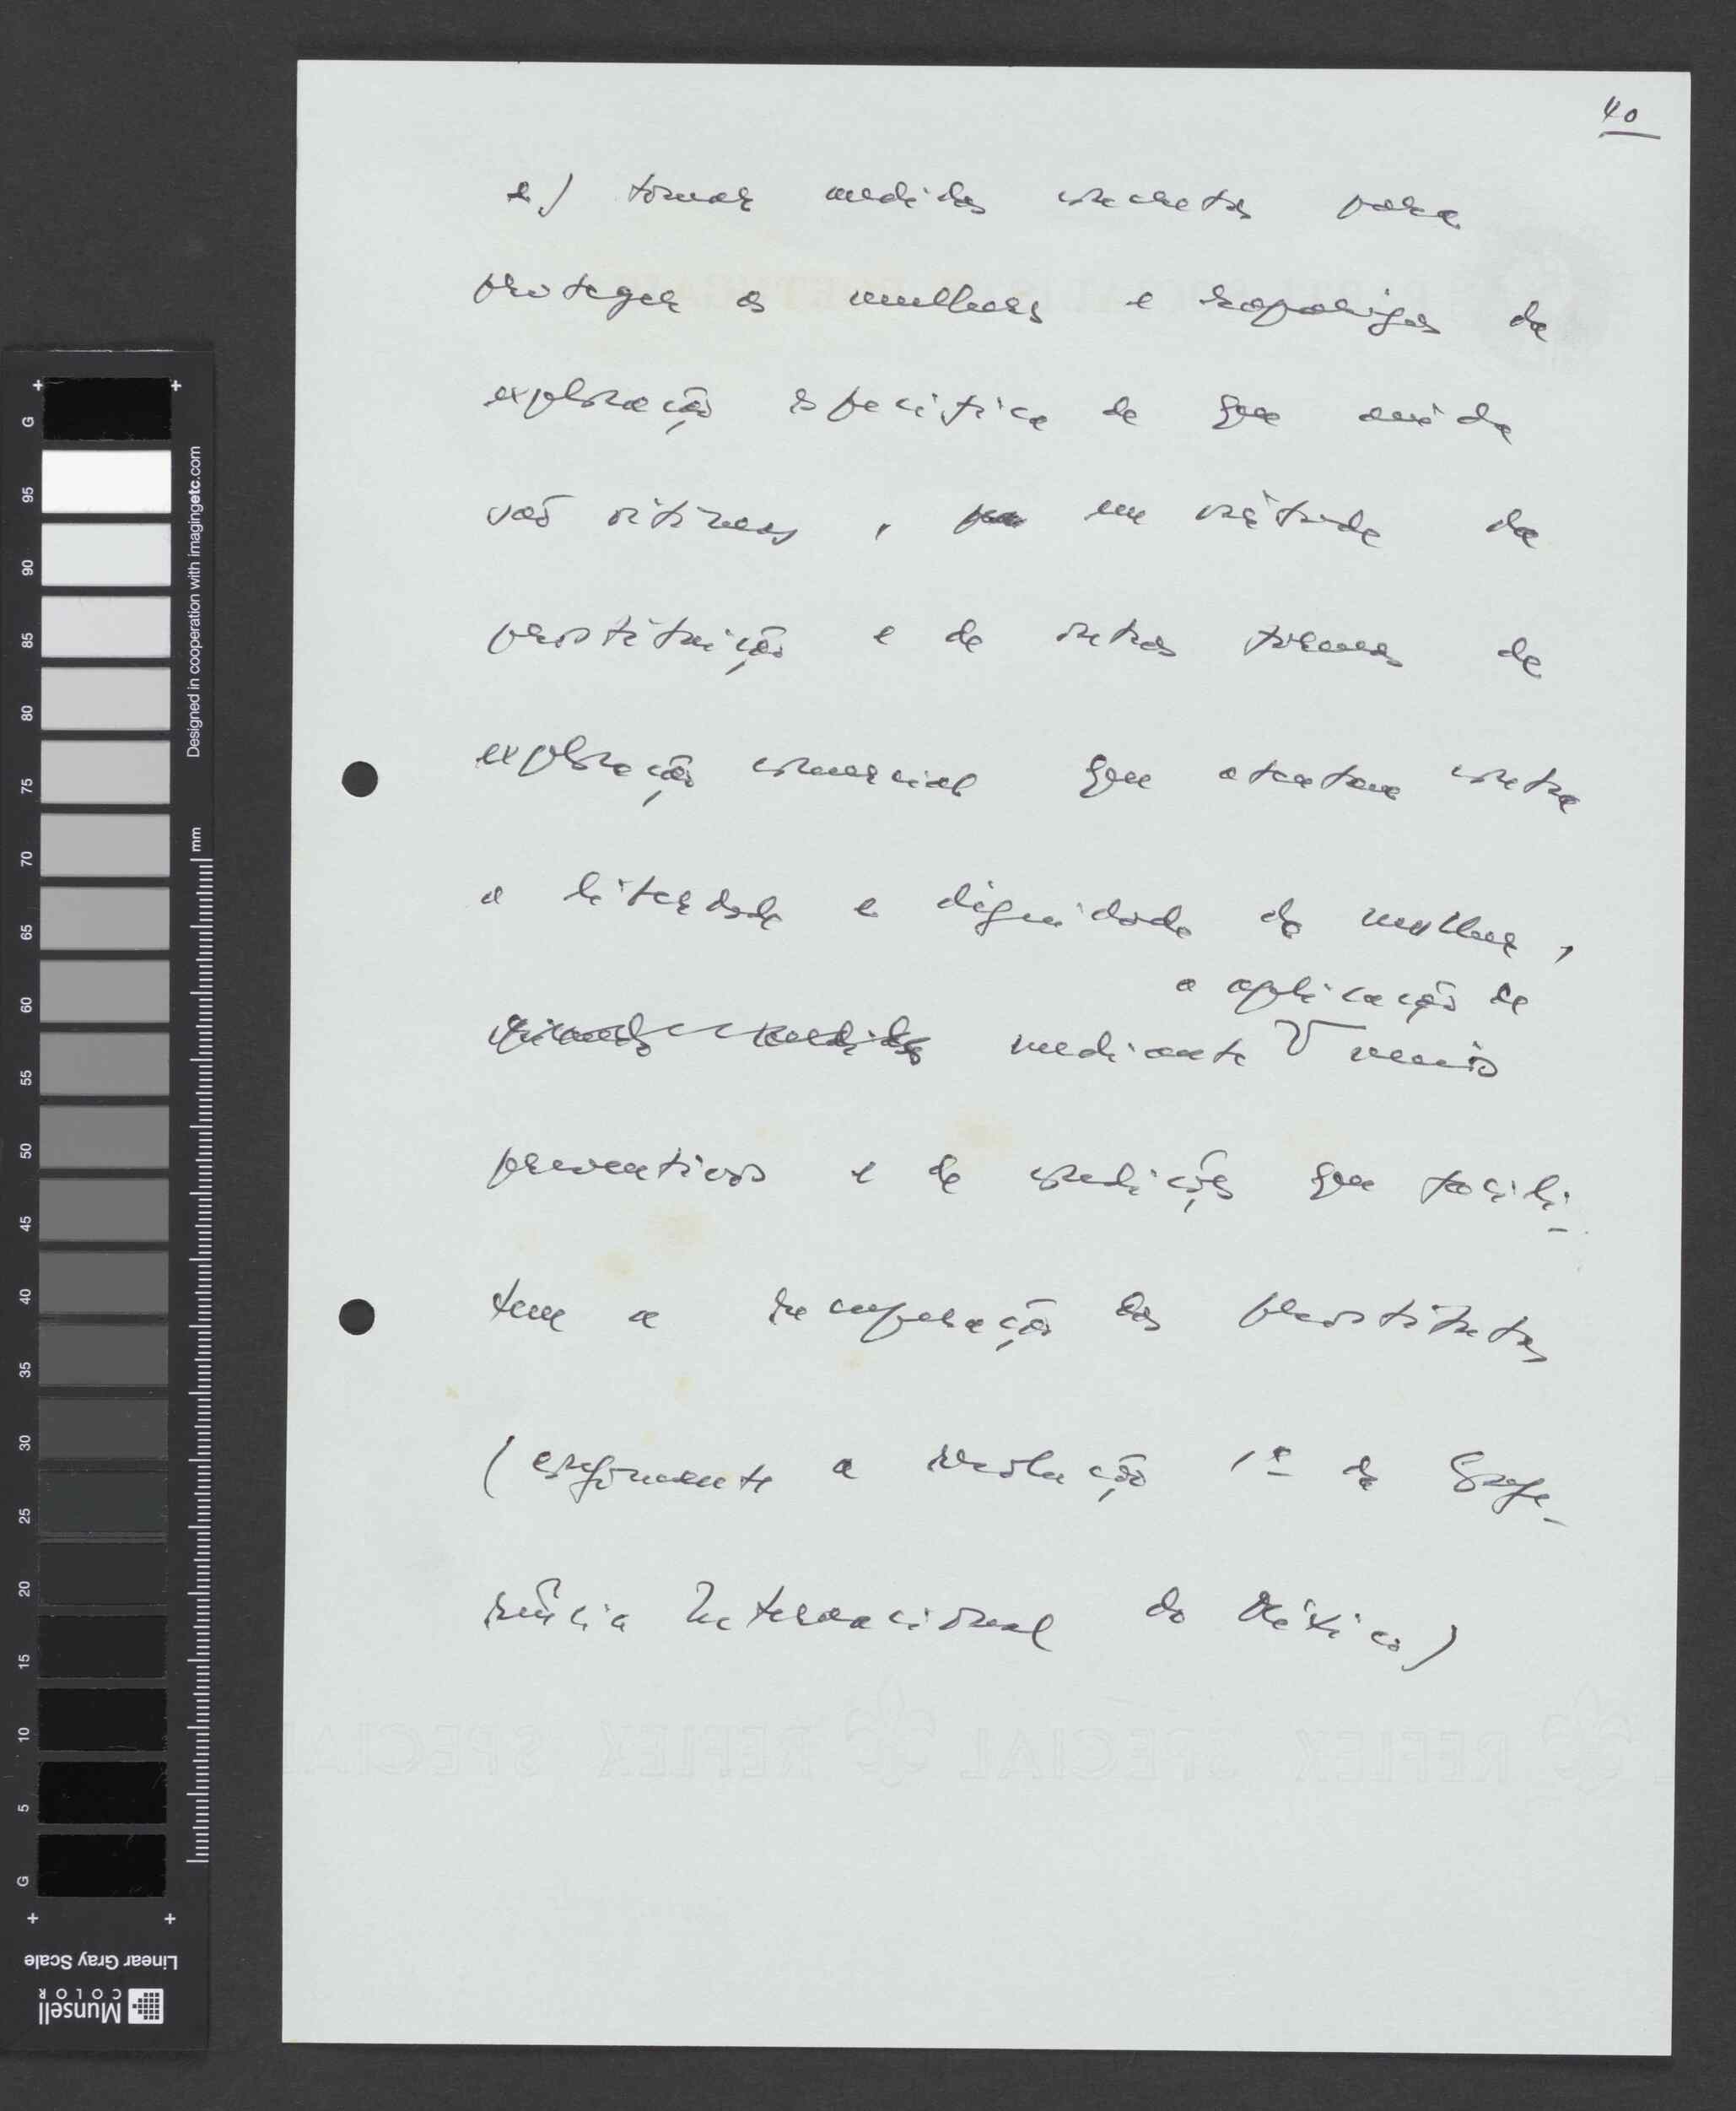 40
e) tomar medidas concretas para
proteger as mulheres e raparigas da
exploração específica de que ainda
são vítimas, em virtude da
prostituição e de outras formas de
exploração comercial que atentam contra
a liberdade e dignidade da mulher,
a aplicação de
mediante meios
preventivos e de condições que facili-
tem a recuperação das prostitutas
(conforme a resolução 1ª da Confe-
rência Internacional do México)
REFLEX SPECIAL REFLEX SPECIAL
Designed in cooperation with imagingetc.com
mm
G 95 90 85 80 75 70 65 60 55 50 45 40 35 30 25 20 15 10 5 G
Linear Gray Scale
Munsell
COLOR